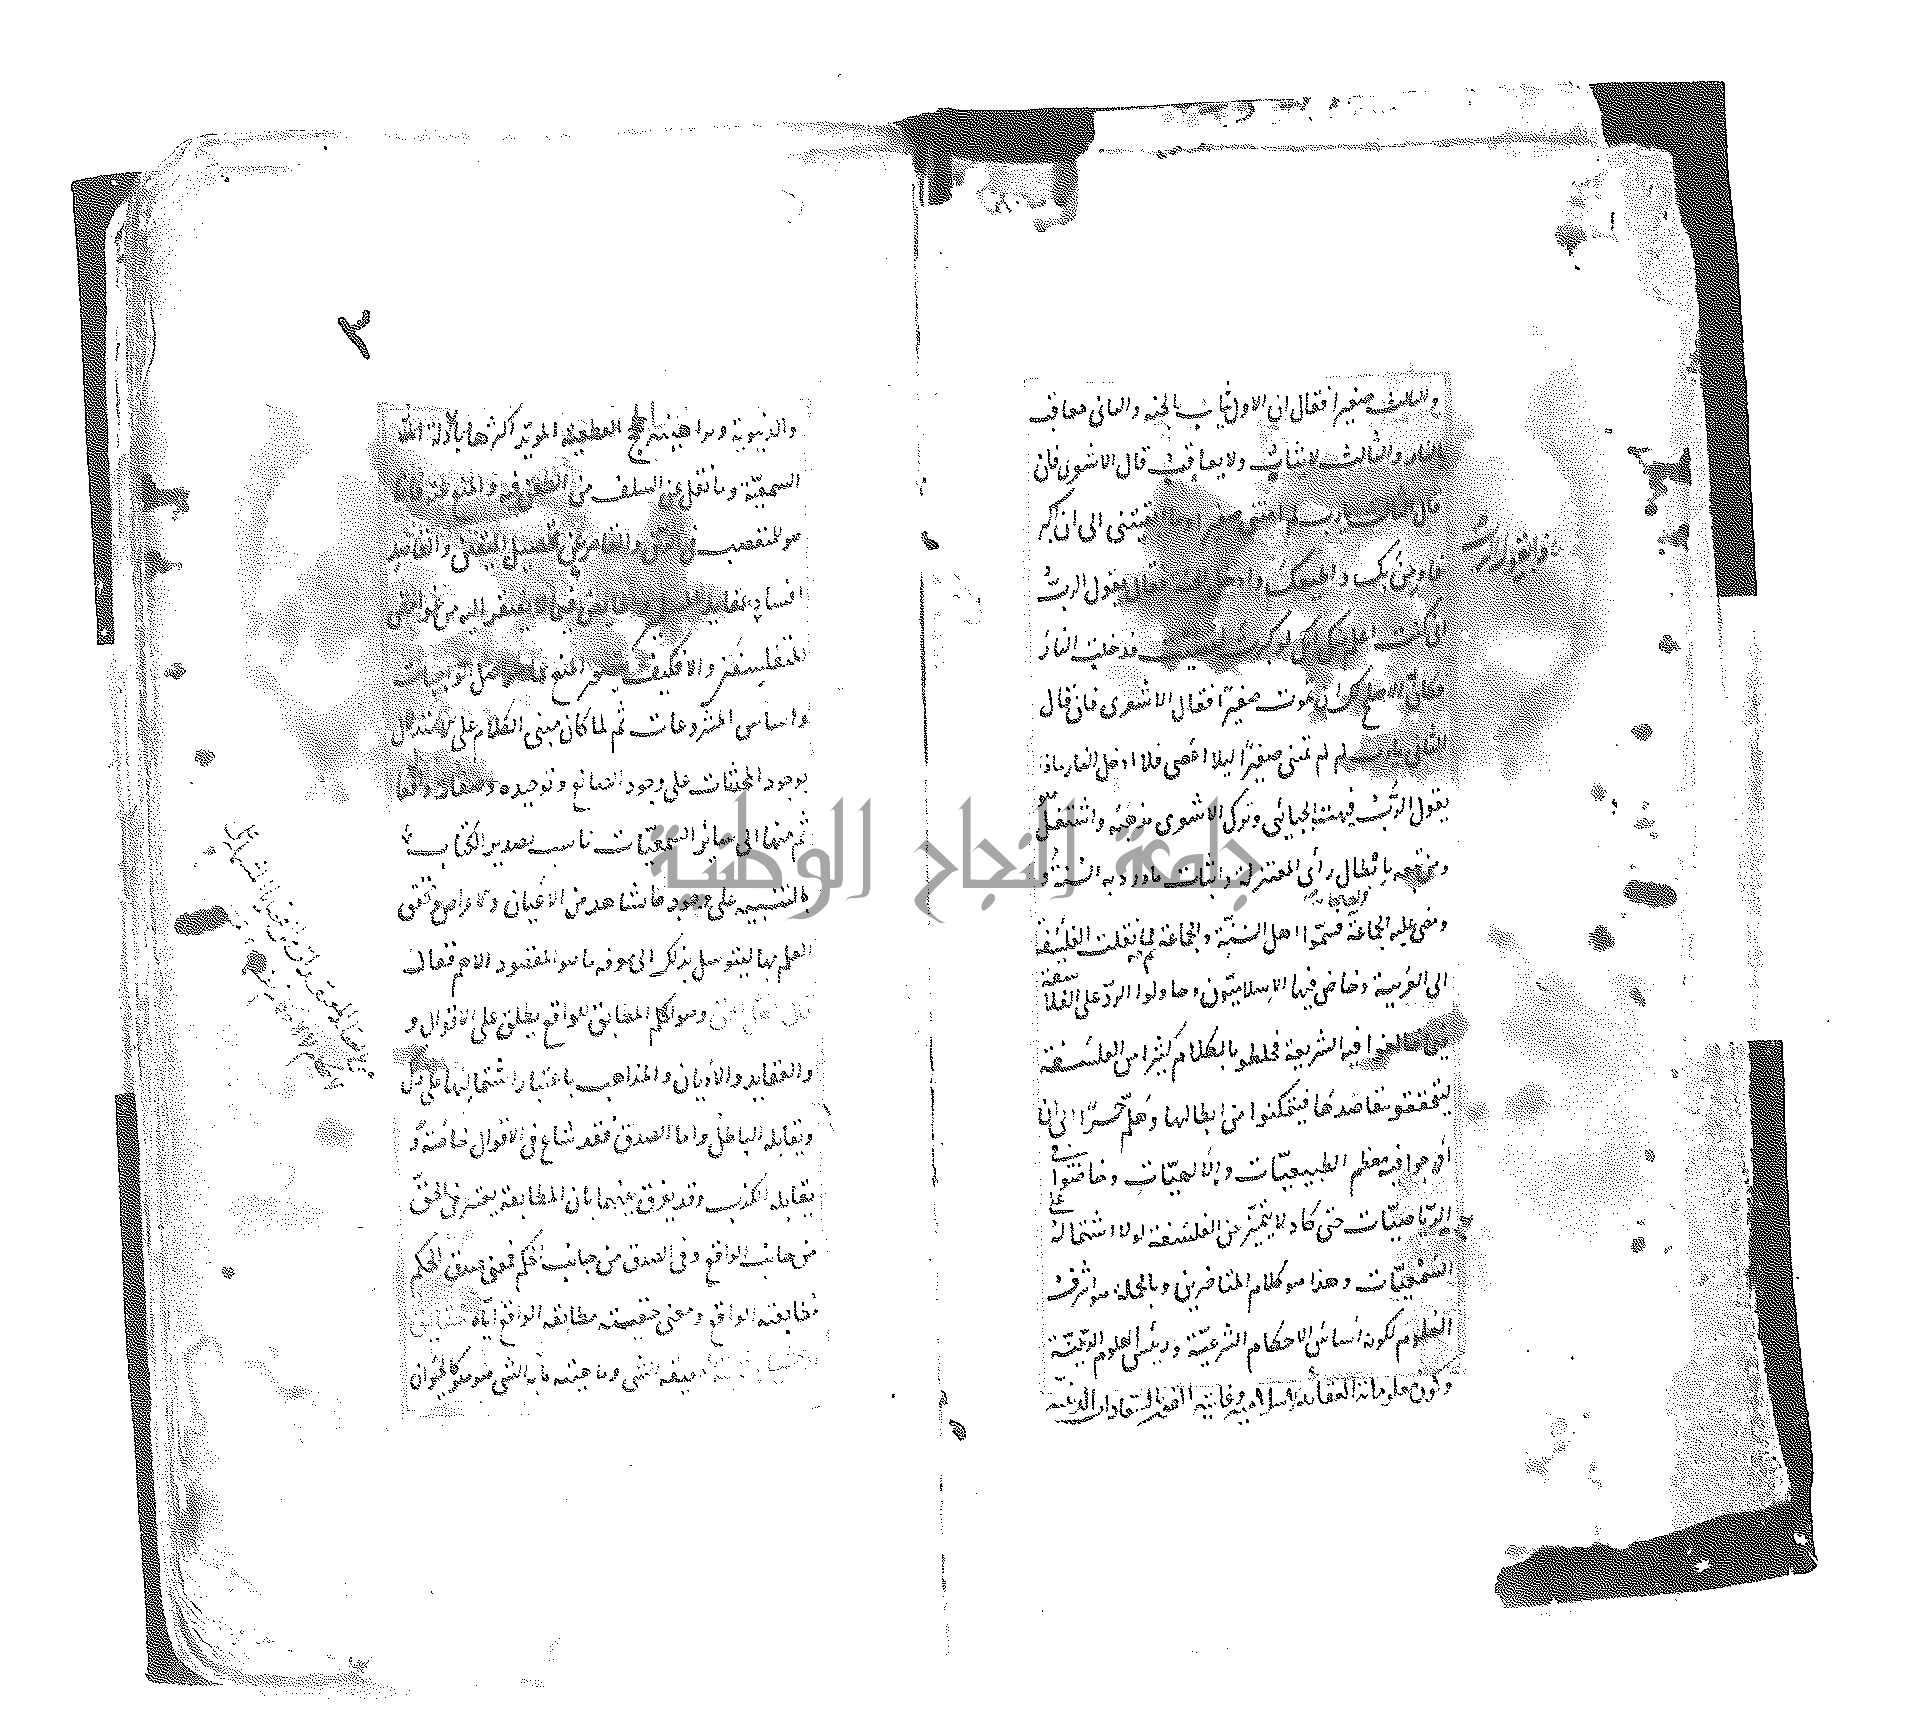 والثالث صغيرا فقال ان الاول يثاب بالجنة والثانى يعاقب
بالنار والثالث لا يثاب ولا يعاقب قال الاشعرى فان
قال الثالث يا رب لم امتنى صغيرا وما ابقيتنى الى ان اكبر
فاومن بك واطيعك فادخل الجنة فقال يقول الرب
انى كنت اعلم منك انك لو كبرت لعصيت فدخلت النار
فكان الاصلح لك ان تموت صغيرا فقال الاشعرى فان قال
الثانى يا رب لم لم تمتنى صغيرا ليلا اعصى فلا ادخل النار ماذا
يقول الرب فبهت الجبائى وترك الاشعرى مذهبه واشتغل
ومن تبعه بابطال رأى المعتزلة واثبات ما ورد به السنة و
الصحابة
ومضى عليه الجماعة فسموا اهل السنة والجماعة ثم لما نقلت الفلسفة
الى العربية وخاض فيها الاسلاميون وحاولوا الرد على الفلا
سفة
فيما خالفوا فيه الشريعة فخلطوا بالكلام كثيرا من الفلسفة
ليتحققوا مقاصدها فيتمكنوا من ابطالها وهلم جرا الى ان
ادرجوا فيه معظم الطبيعيات والالهيات وخاضوا فى
الرياضيات حتى كاد لا يتميز عن الفلسفة لولا اشتماله
على
السمعيات وهذا هو كلام المتاخرين وبالجملة هو اشرف
العلوم لكونه اساس الاحكام الشرعية ورئيس العلوم الدينية
وكون معلوماته العقائد الاسلامية وغايته الفوز بالسعادات الدينية
٢
والدنيوية وبراهينه الحجج القطعية المويد اكثرها بالادلة
السمعية وما نقل عن السلف من الطعن فيه والمنع عنه فانما
هو للمتعصب فى الدين والقاصر عن تحصيل اليقين والقاصد
افساد عقايد المسلمين والخائض فيما لا يفتقر اليه من غوامض
المتفلسفين والا فكيف يتصور المنع عما هو اصل الواجبات
واساس المشروعات ثم لما كان مبنى الكلام على الاستدلال
بوجود المحدثات على وجود الصانع وتوحيده وصفاته وافعاله
ثم منها الى سائر السمعيات ناسب تصدير الكتاب
بالتنبيه على وجود ما يشاهد من الاعيان والاعراض وتحقق
العلم بها ليتوسل بذلك الى معرفة ما هو المقصود الاهم فقال
قال اهل الحق وهو الحكم المطابق للواقع يطلق على الاقوال و
والعقايد والاديان والمذاهب باعتبار اشتمالها على ذلك
ويقابله الباطل واما الصدق فقد شاع فى الاقوال خاصة و
يقابله الكذب وقد يفرق بينهما بان المطابقة يعتبر فى الحق
من جانب الواقع وفى الصدق من جانب الحكم فمعنى صدق الحكم
مطابقته الواقع ومعنى حقيته مطابقة الواقع اياه حقايق
الاشياء ثابتة حقيقة الشى وماهيته ما به الشى هو هو كالحيوان
جامعة النجاح الوطنية